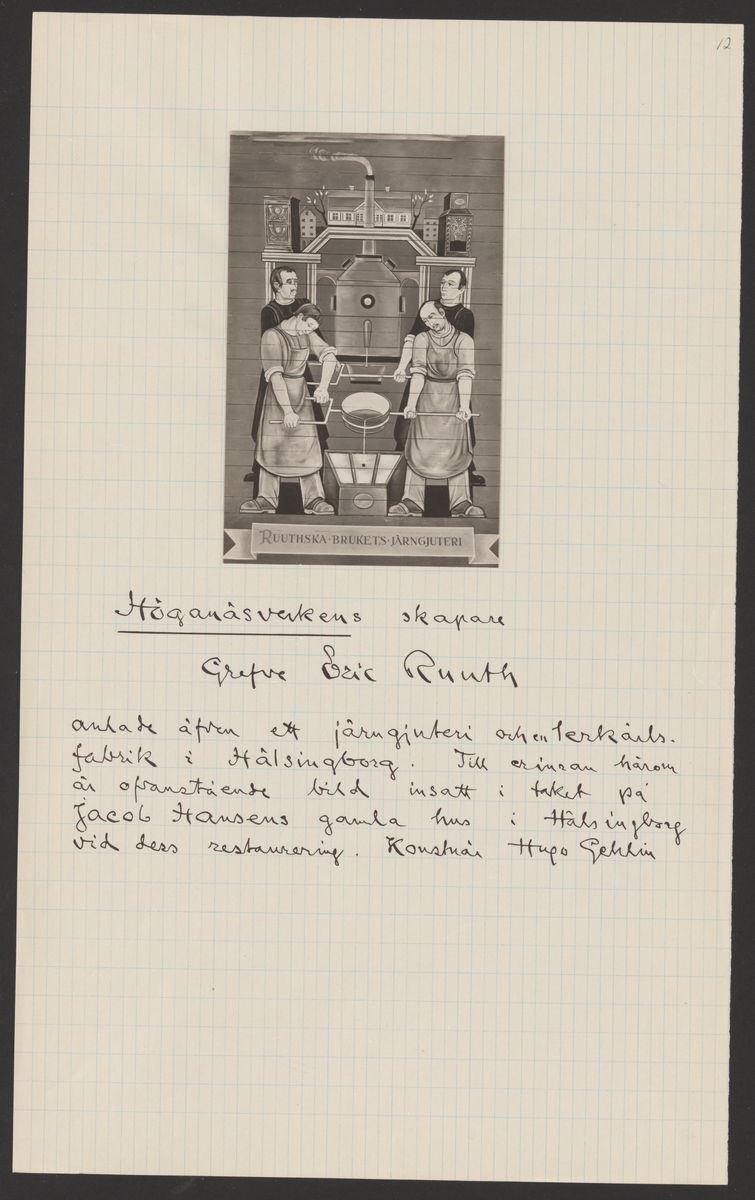 12
RUUTHSKA·BRUKETS·JÄRNGJUTERI
Höganäsverkens skapare
Grefve Eric Ruuth
anlade äfven ett järngjuteri och en lerkärls-
fabrik i Hälsingborg. Till erinran härom
är ofvanstående bild insatt i taket på
Jacob Hansens gamla hus i Hälsingborg
vid dess restaurering. Konstnär Hugo Gehlin